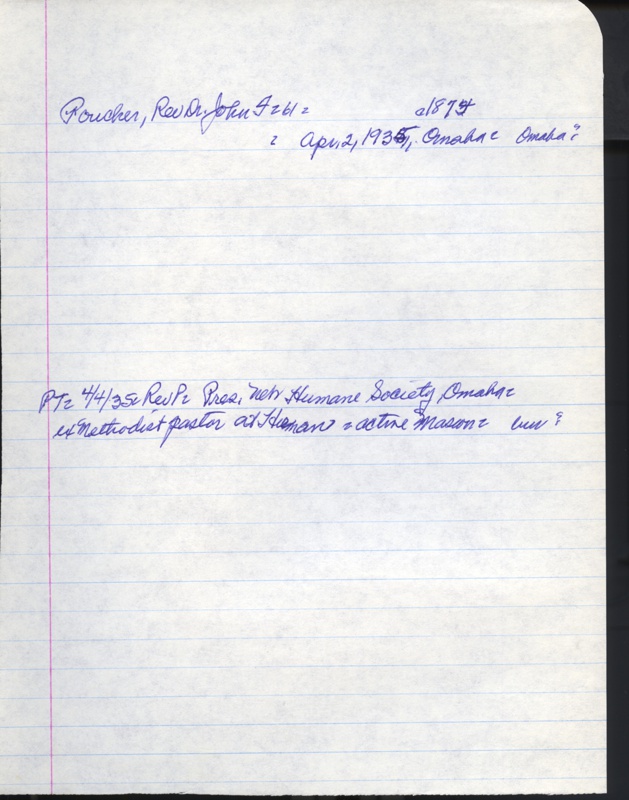 Poucher, Rev Dr. John F = 61 = a1874
= Apr. 2, 1935, Omaha = Omaha?
PT = 4/4/35 = Rev P = Pres. Neb Humane Society Omaha =
ex Methodist pastor at = active Mason = bur?